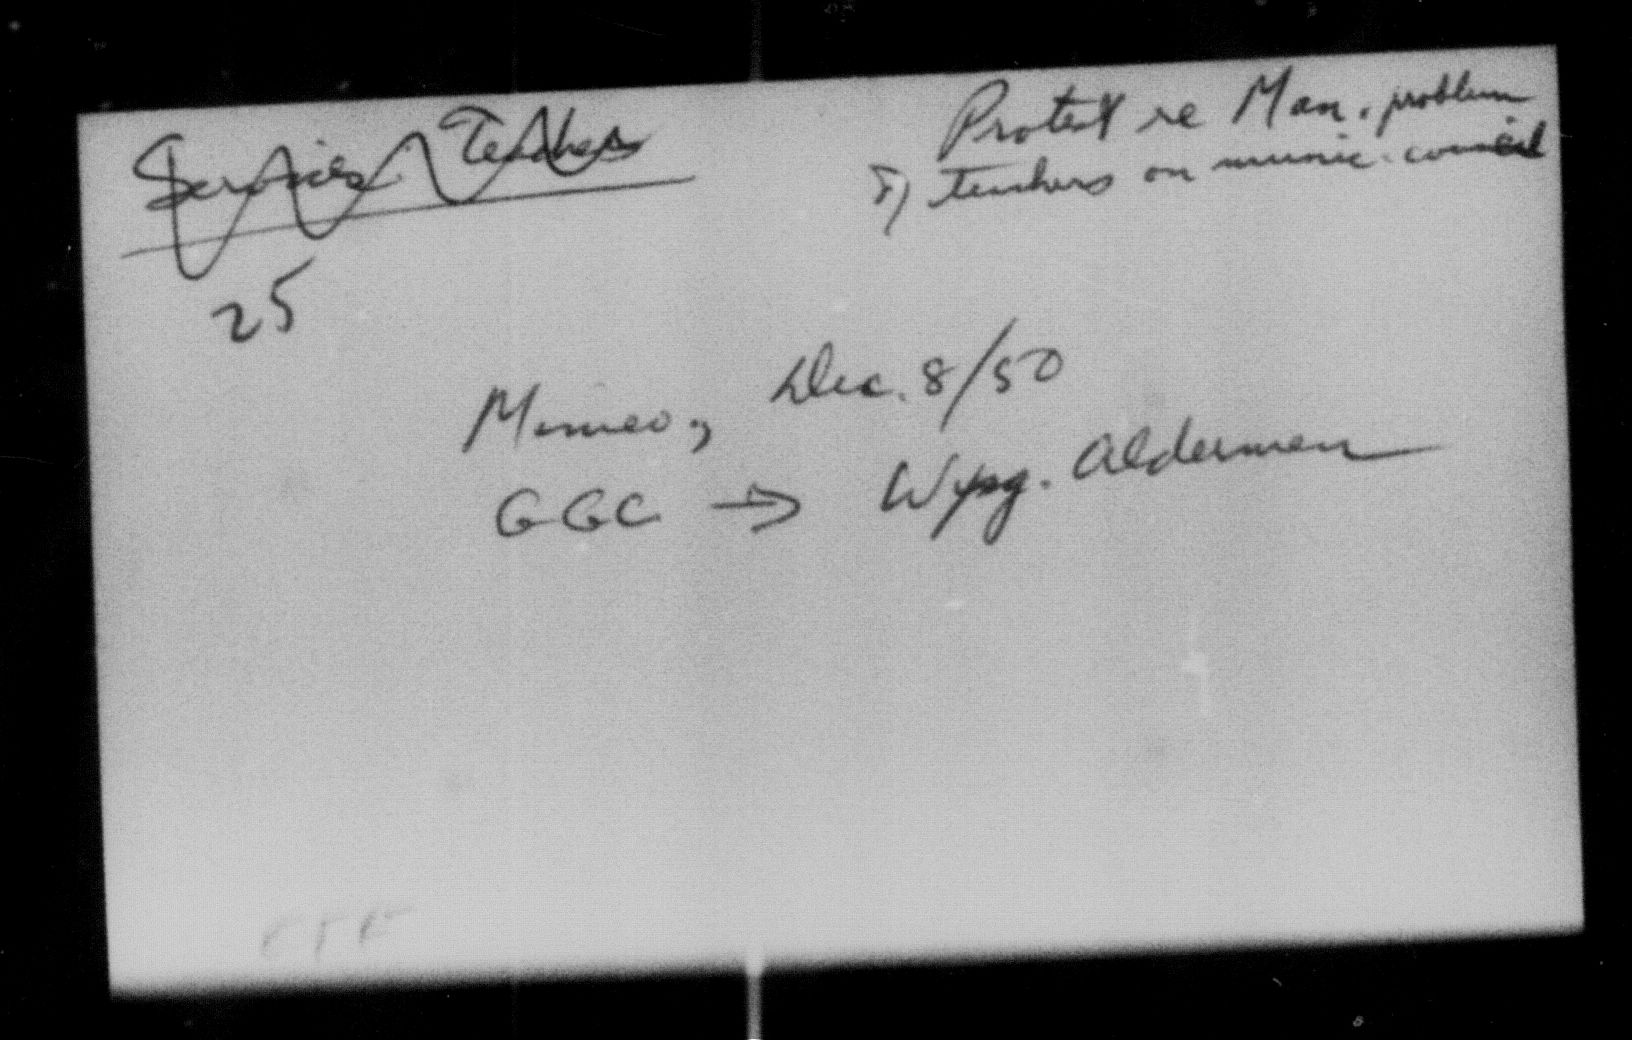 Services. Teachers
Protest re Man. problem
of) teachers on munic. council
25
Mimeo, Dec. 8/50
GGC → Wpg. Aldermen
CTF